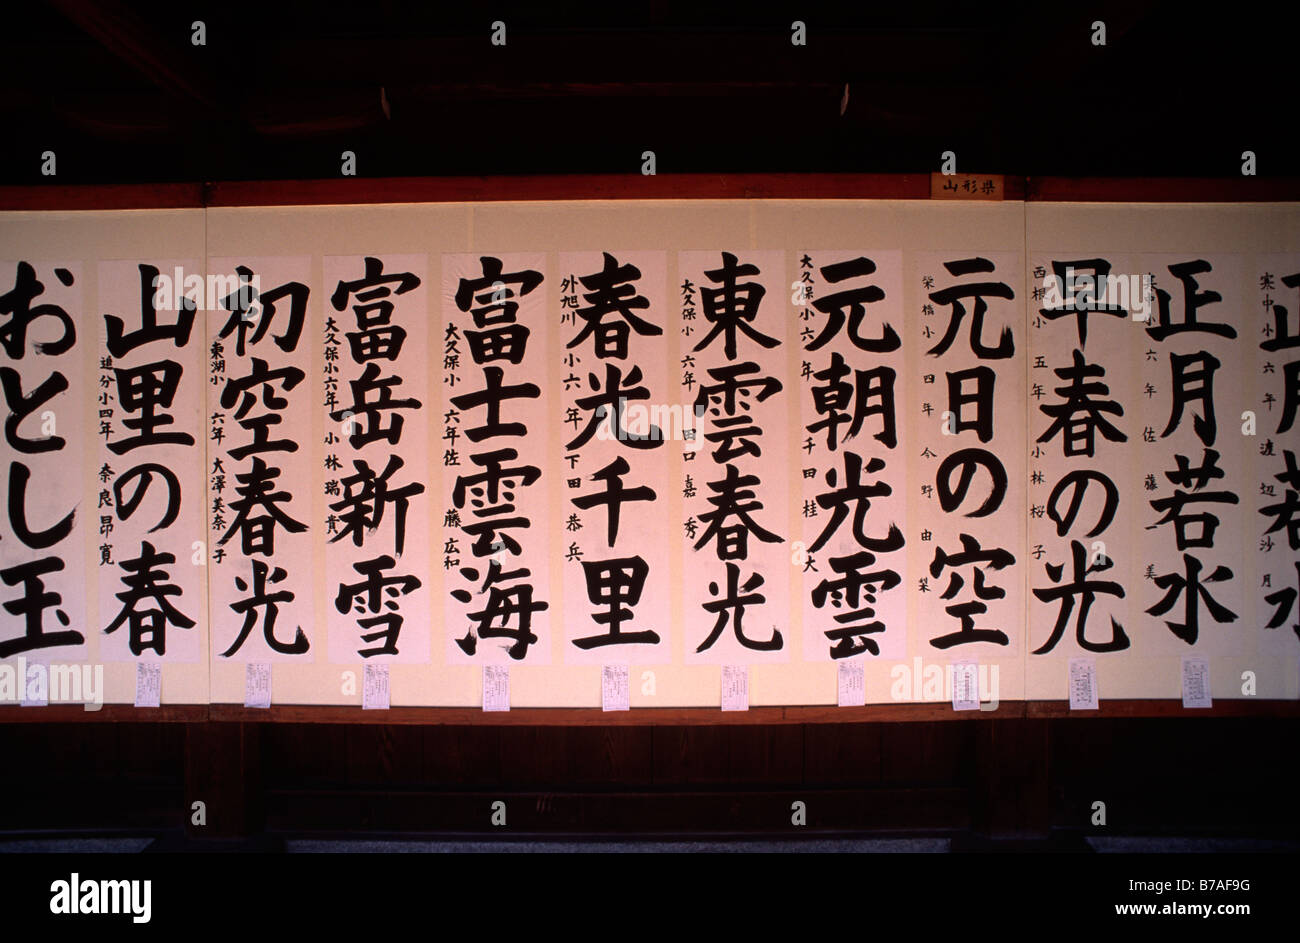 山形県
正月若
寒中小六年 渡辺沙月
正月若水
寒中小六年 佐藤美
早春の光
西根小五年 小林桜子
元日の空
栄橋小四年 今野由梨
元朝光雲
大久保小六年 千田桂大
東雲春光
大久保小六年 田口嘉秀
春光千里
外旭川小六年 下田恭兵
富士雲海
大久保小六年 佐藤広和
富岳新雪
大久保小六年 小林瑞貴
初空春光
東湖小六年 大澤美奈子
山里の春
追分小四年 奈良昂寛
おとし玉
alamy
Image ID: B7AF9G
www.alamy.com